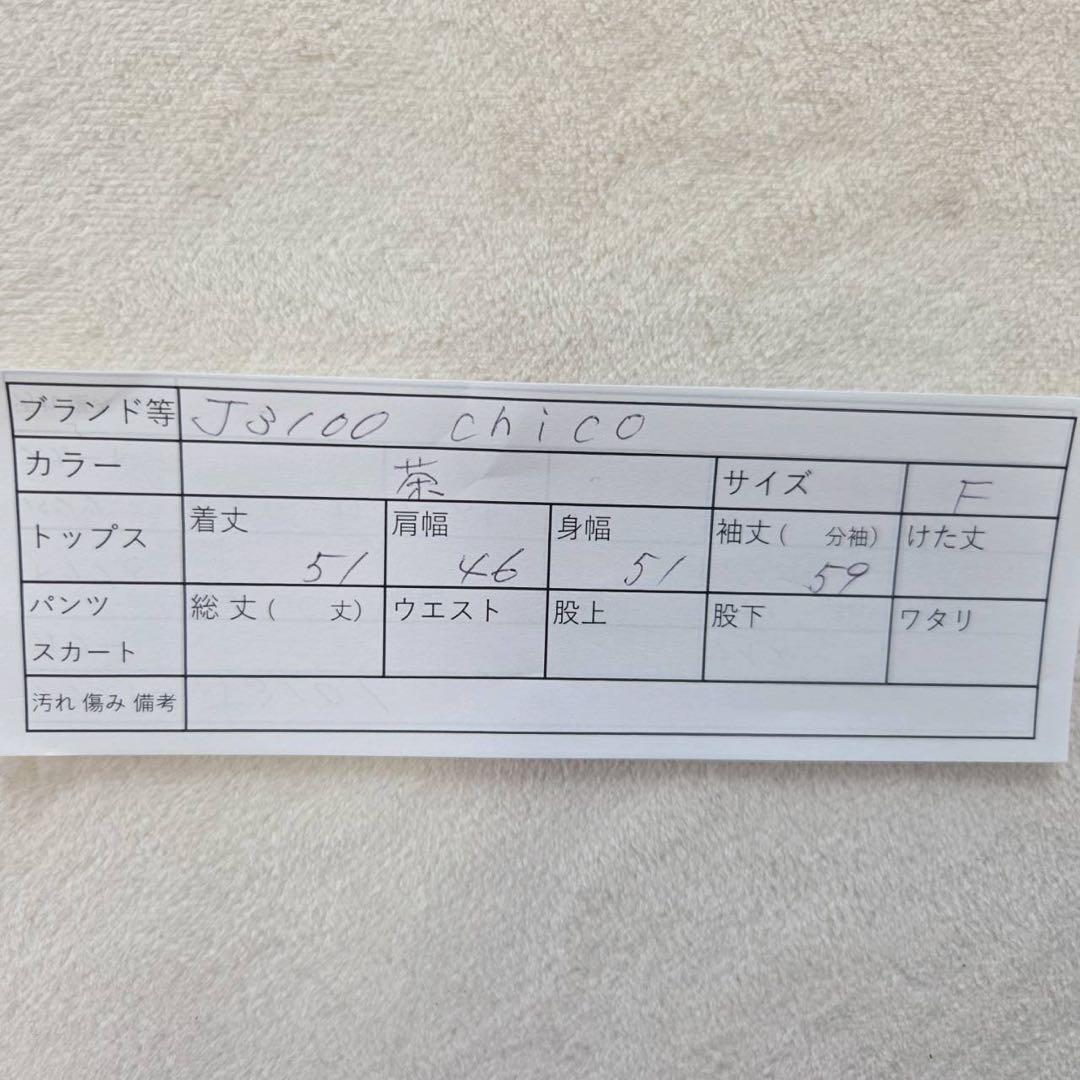 ブランド等 J3100 chico
カラー 茶 サイズ F
トップス 着丈 51 肩幅 46 身幅 51 袖丈( 分袖) 59 けた丈
パンツ スカート 総丈( 丈) ウエスト 股上 股下 ワタリ
汚れ 傷み 備考